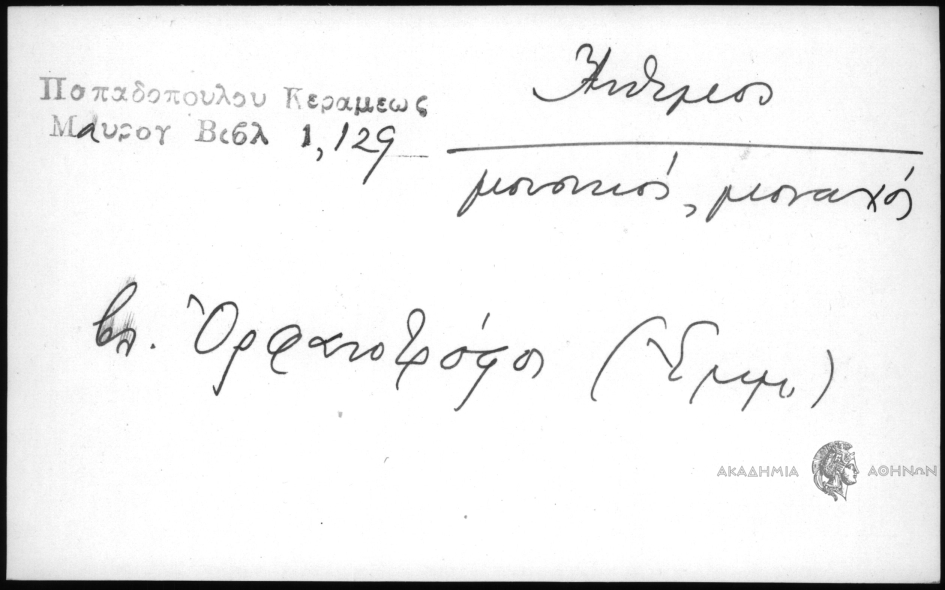 Παπαδοπουλου Κεραμεως
Μαυρογ Βιβλ 1,129
Ἄνθιμος
μουσικός, μοναχός
βλ. Ὀρφανοτρόφος
ΑΚΑΔΗΜΙΑ ΑΘΗΝΩΝ